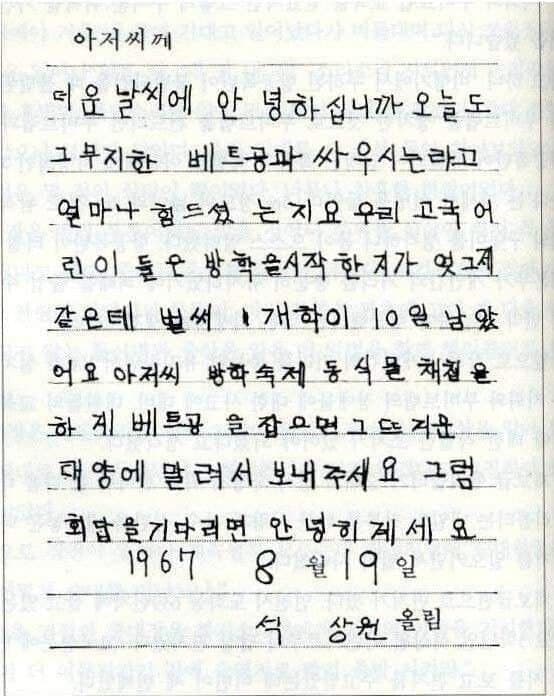 아저씨께
더운 날씨에 안녕하십니까 오늘도
그무지한 베트공과 싸우시는라고
얼마나 힘드셨는지요 우리 고국어
린이들은 방학을시작한지가 엊그제
같은데 벌써 개학이 10일남았
어요 아저씨 방학숙제 동식물 채집을
하게 베트공을 잡으면그뜨거운
태양에 말려서 보내주세요 그럼
회답을기다리면 안녕히계세요
1967 8월 19일
석 상원 올림